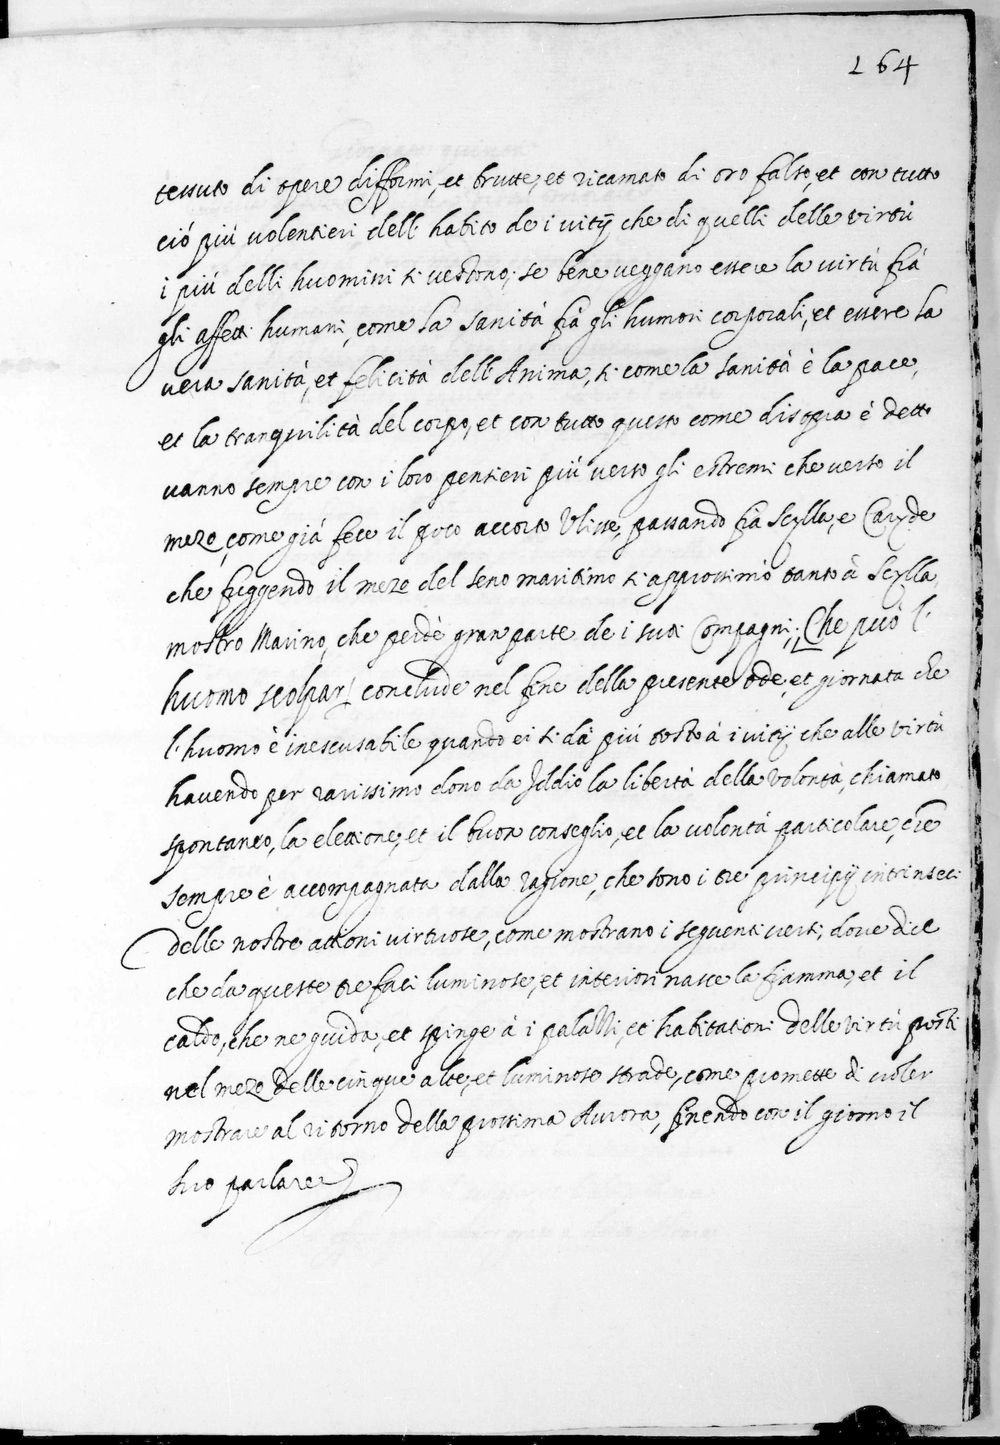 164
tessuto di opere difformi, et brutte, et ricamato di oro falso, et con tutto
ció più volentieri dell' habito de i vitij che di quelli delle virtù
i più delli huomini si vestono; se bene veggano essere la virtù frà
gli affetti humani, come la sanità frà gli humori corporali, et essere la
vera sanità, et felicità dell' Anima, si come la sanità è la pace,
et la tranquilità del corpo, et con tutto questo come disopra è detto
vanno sempre con i loro pensieri più verso gli estremi che verso il
mezo, come già fece il poco accorto Ulisse, passando frà Scylla, e Caryde
che fuggendo il mezo del seno maritimo si approssimò tanto à Scylla,
mostro Marino, che perdè gran parte de i suoi Compagni; Che può l'
huomo scolpar conclude nel fine della presente ode, et giornata che
l' huomo è inescusabile quando ei si dà più tosto à i vitij che alle virtù
havendo per rarissimo dono da Iddio la libertà della volontà, chiamato
spontaneo, la elettione, et il buon conseglio, et la volontà particolare, che
sempre è accompagnata dalla ragione, che sono i tre principij intrinseci
delle nostre attioni virtuose, come mostrano i seguenti versi, dove dice
che da queste tre faci luminose, et interiori nasce la fiamma, et il
caldo, che ne guida, et spinge à i palazzi, et habitationi delle virtù posti
nel mezo delle cinque alte, et luminose strade, come promette di voler
mostrare al ritorno della prossima Aurora, finendo con il giorno il
suo parlare